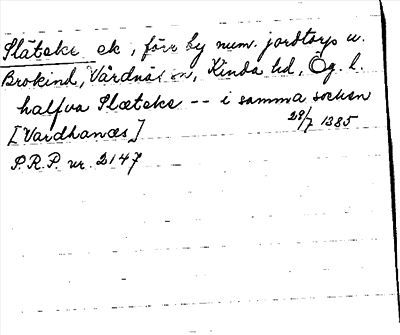 Släteke ek, förr by num. jordtorp u.
Brokind, Vårdnäs sn, Kinda hd, Ög. l.
halfva Slæteke -- i samma socken
[Vardhanæs] 28/7 1385
P.R.P. nr. 2147